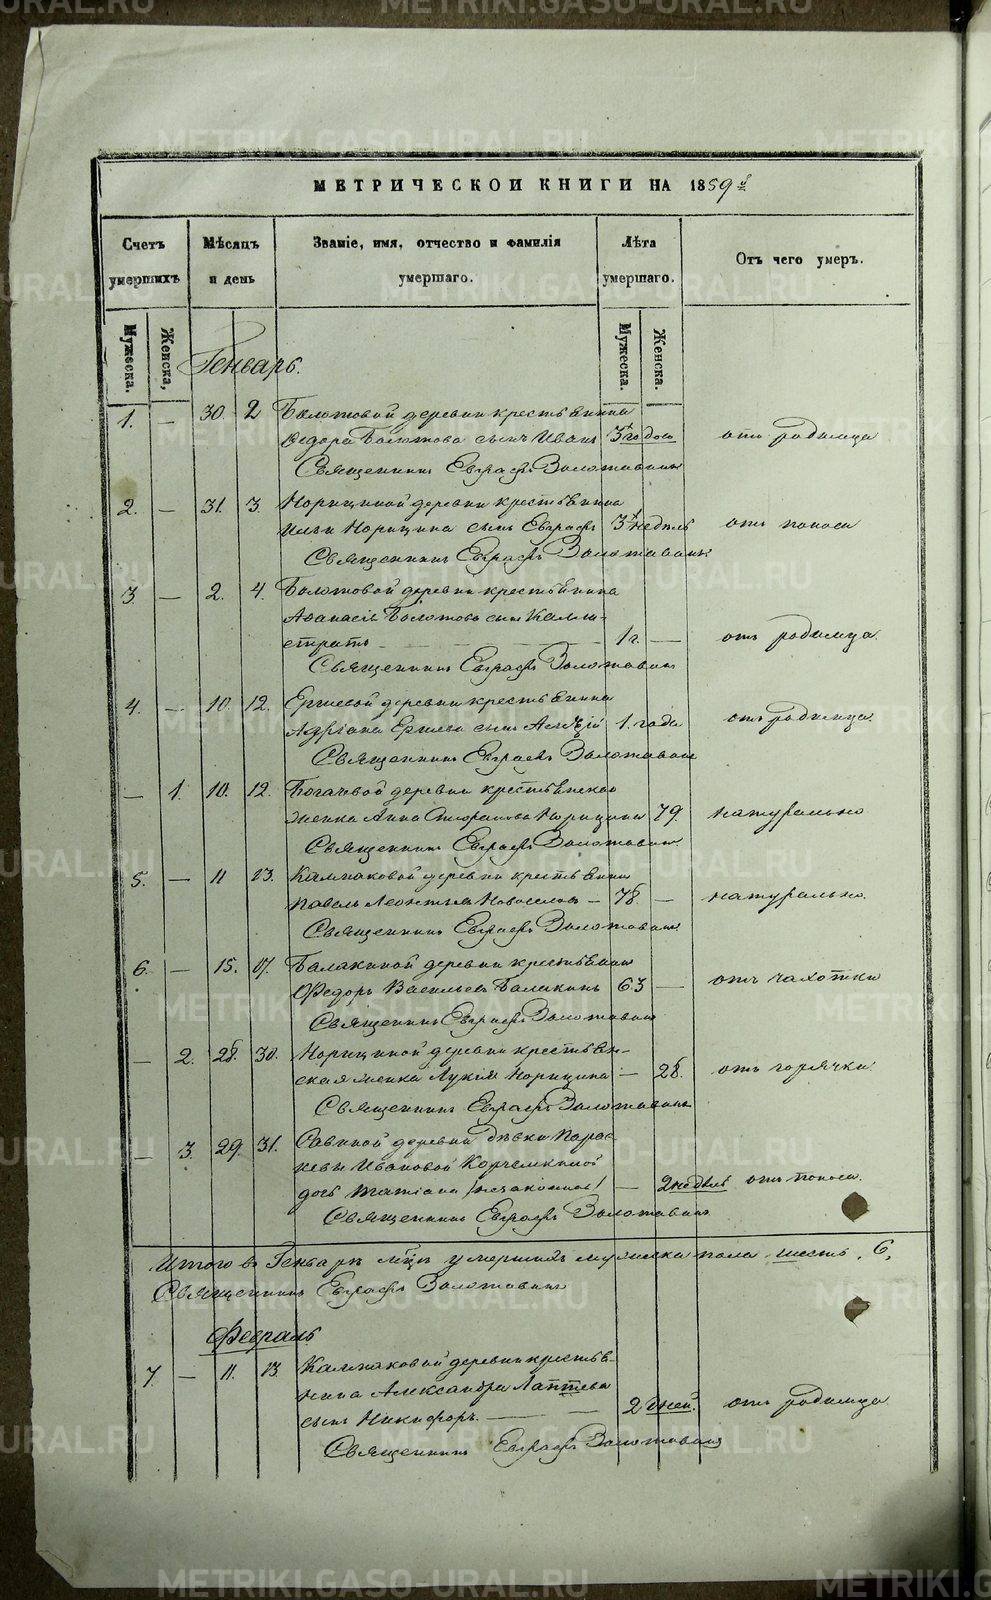 МЕТРИЧЕСКОЙ КНИГИ НА 1859й
Счетъ умершихъ
Мѣсяцъ и день
Званіе, имя, отчество и фамилія умершаго.
Лѣта умершаго.
Отъ чего умеръ.
Мужеска.
Женска,
Мужеска.
Женска.
Генварь.
1. — 30 2 Болотовой деревни крестьянина
Ѳедора Болотова сынъ Иванъ 3х годов отъ родимца
Священникъ Евграфъ Золотавинъ
2. — 31. 3. Норициной деревни крестьянина
Ильи Норицина сынъ Евграфъ 3х недѣль отъ поноса
Священникъ Евграфъ Золотавинъ
3. — 2. 4. Болотовой деревни крестьянина
Аѳанасія Болотова сынъ Кали-
стратъ — 1 г. — отъ родимца
Священникъ Евграфъ Золотавинъ
4. — 10. 12. Ершевой деревни крестьянина
Адріана Ершева сынъ Алексѣй 1. года отъ родимца.
Священникъ Евграфъ Золотавинъ
— 1. 10. 12. Богачевой деревни крестьянская
женка Анна Норицина 79 натурально
Священникъ Евграфъ Золотавинъ
5. — 11 13. Калмаковой деревни крестьянинъ
Павелъ Леонтьевъ Новоселовъ — 78. — натурально.
Священникъ Евграфъ Золотавинъ
6. — 15. 17. Балакиной деревни крестьянинъ
Федоръ Васильевъ Балакинъ 63 — отъ чахотки
Священникъ Евграфъ Золотавинъ
— 2. 28. 30. Норициной деревни крестьян-
ская женка Лукія Норицина — 28. отъ горячки.
Священникъ Евграфъ Золотавинъ
— 3. 29. 31. Савиной деревни дѣвки Парас-
кевы Ивановой
дочь Татіана /незаконная/ — 2 недѣль отъ поноса.
Священникъ Евграфъ Золотавинъ
Итого в Генварѣ мцѣ умершихъ мужеска пола шесть. 6,
Священникъ Евграфъ Золотавинъ
Февраль.
7. — 11. 13. Калмаковой деревни крестья-
нина Александра Лаптева
сынъ Никифоръ. — 2 дней. отъ родимца
Священникъ Евграфъ Золотавинъ
METRIKI.GASO-URAL.RU